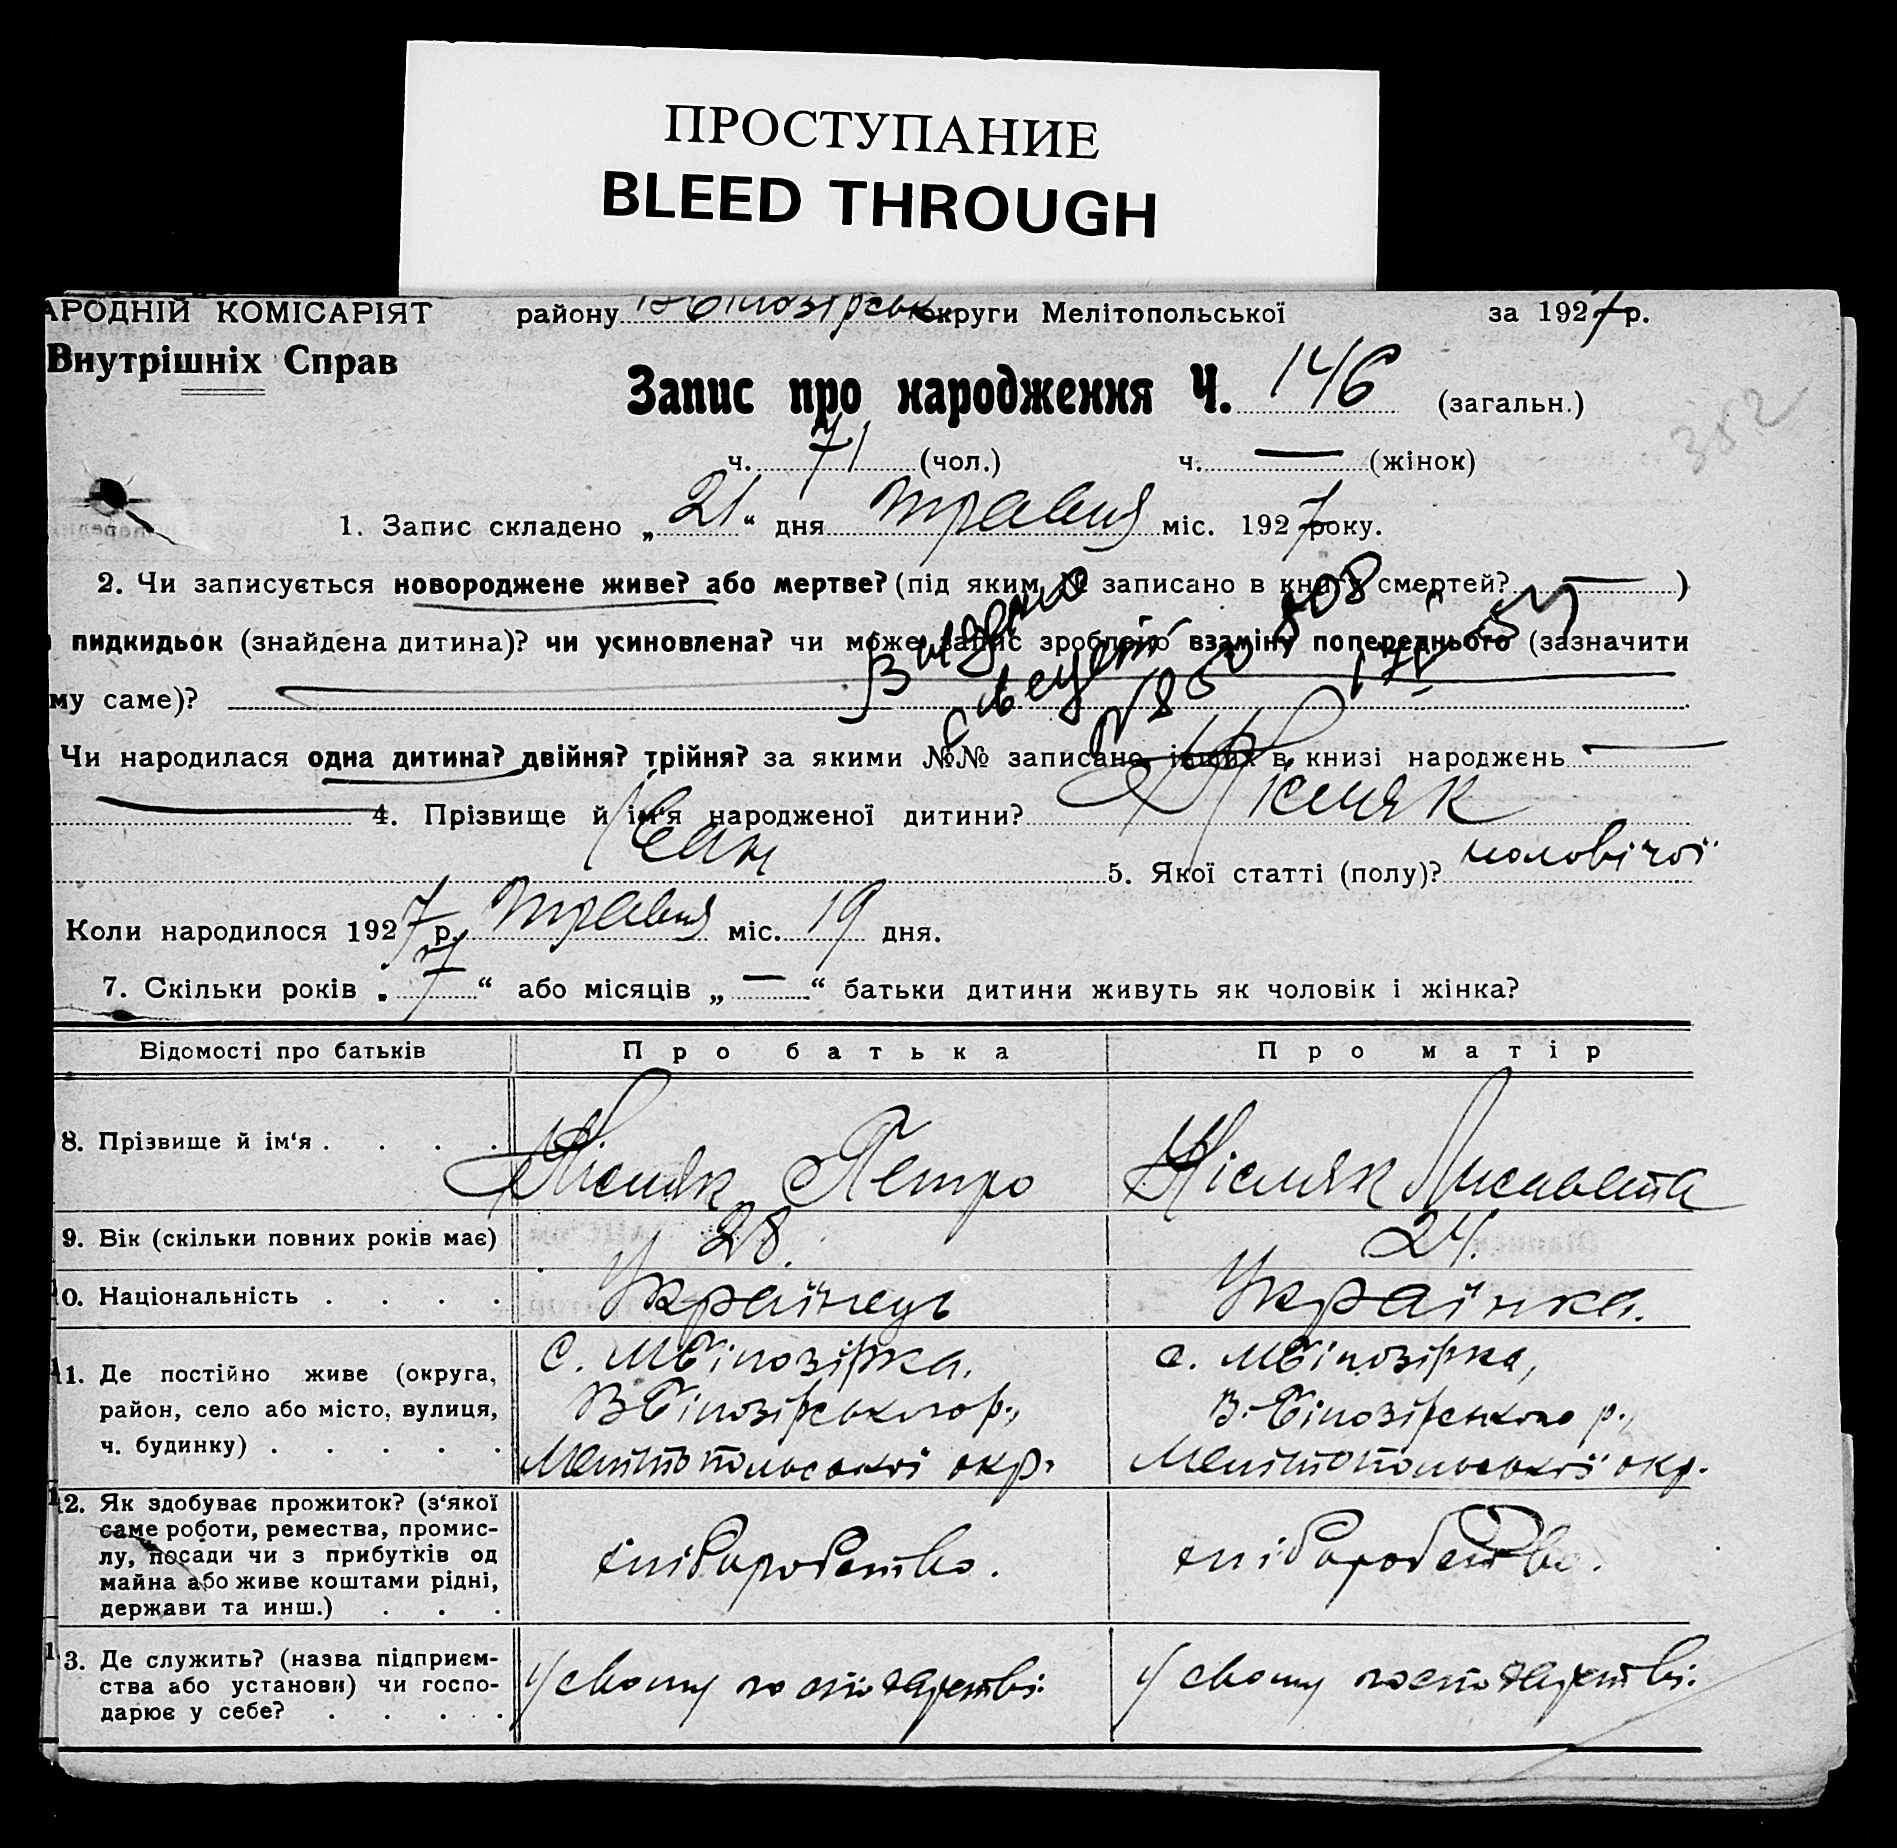 ПРОСТУПАНИЕ
BLEED THROUGH
АРОДНІЙ КОМІСАРІЯТ району В Білозірськ округи Мелітопольської за 1927 р.
Внутрішніх Справ
Запис про народження Ч. 146 (загальн.)
352
ч. 71 (чол.) ч. — (жінок)
1. Запис складено „21“ дня травня міс. 1927 року.
2. Чи записується новороджене живе? або мертве? (під яким № записано в книгу смертей? —)
пидкидьок (знайдена дитина)? чи усиновлена? чи може запис зроблено взаміну попереднього (зазначити
му саме)?
Чи народилася одна дитина? двійня? трійня? за якими №№ записано інших в книзі народжень —
— 4. Прізвище й ім‘я народженої дитини? Кісмяк
Іван 5. Якої статті (полу)? чоловічої
Коли народилося 1927 р. травня міс. 19 дня.
7. Скільки років „7“ або місяців „—“ батьки дитини живуть як чоловік і жінка?
Відомості про батьків Про батька Про матір
8. Прізвище й ім‘я . . . . Петро
9. Вік (скільки повних років має) 28. 24.
0. Національність . . . . Українець Українка.
11. Де постійно живе (округа, район, село або місто, вулиця, ч. будинку) . . . . .
с. МБілозірка,
ВБілозірського р.,
Мелітопольської окр.
с. МБілозірка,
В-Білозірського р.,
Мелітопольської окр.
12. Як здобуває прожиток? (з‘якої
саме роботи, ремества, промис-
лу, посади чи з прибутків од
майна або живе коштами рідні,
держави та инш.) . . .
хліборобство.
хліборобство.
13. Де служить? (назва підприєм-
ства або установи) чи госпо-
дарює у себе? . . . .
У свому господарстві.
У свому господарстві.